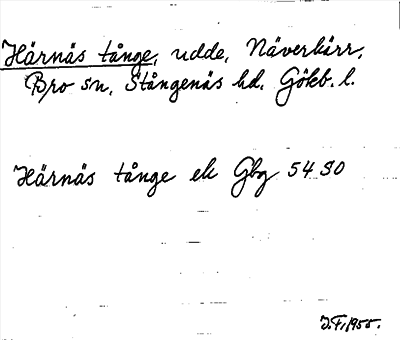 Härnäs tånge, udde, Näverkärr,
Bro sn, Stångenäs hd. Götb. l.
Härnäs tånge ek Gbg 54 SO
J.F. 1955.